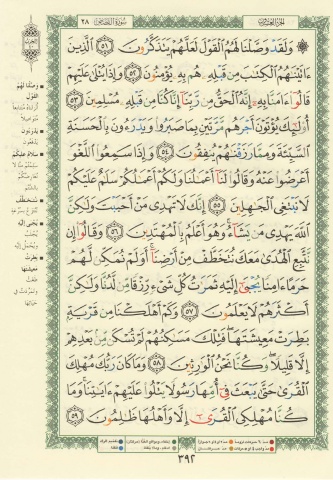 الجزء العشرون
سورة القصص ٢٨
۞ وَلَقَدْ وَصَّلْنَا لَهُمُ ٱلْقَوْلَ لَعَلَّهُمْ يَتَذَكَّرُونَ ٥١ ٱلَّذِينَ
ءَاتَيْنَٰهُمُ ٱلْكِتَٰبَ مِن قَبْلِهِۦ هُم بِهِۦ يُؤْمِنُونَ ٥٢ وَإِذَا يُتْلَىٰ عَلَيْهِمْ
قَالُوٓا۟ ءَامَنَّا بِهِۦٓ إِنَّهُ ٱلْحَقُّ مِن رَّبِّنَآ إِنَّا كُنَّا مِن قَبْلِهِۦ مُسْلِمِينَ ٥٣
أُو۟لَٰٓئِكَ يُؤْتَوْنَ أَجْرَهُم مَّرَّتَيْنِ بِمَا صَبَرُوا۟ وَيَدْرَءُونَ بِٱلْحَسَنَةِ
ٱلسَّيِّئَةَ وَمِمَّا رَزَقْنَٰهُمْ يُنفِقُونَ ٥٤ وَإِذَا سَمِعُوا۟ ٱللَّغْوَ
أَعْرَضُوا۟ عَنْهُ وَقَالُوا۟ لَنَآ أَعْمَٰلُنَا وَلَكُمْ أَعْمَٰلُكُمْ سَلَٰمٌ عَلَيْكُمْ
لَا نَبْتَغِى ٱلْجَٰهِلِينَ ٥٥ إِنَّكَ لَا تَهْدِى مَنْ أَحْبَبْتَ وَلَٰكِنَّ
ٱللَّهَ يَهْدِى مَن يَشَآءُ وَهُوَ أَعْلَمُ بِٱلْمُهْتَدِينَ ٥٦ وَقَالُوٓا۟ إِن
نَّتَّبِعِ ٱلْهُدَىٰ مَعَكَ نُتَخَطَّفْ مِنْ أَرْضِنَآ أَوَلَمْ نُمَكِّن لَّهُمْ
حَرَمًا ءَامِنًا يُجْبَىٰٓ إِلَيْهِ ثَمَرَٰتُ كُلِّ شَىْءٍ رِّزْقًا مِّن لَّدُنَّا وَلَٰكِنَّ
أَكْثَرَهُمْ لَا يَعْلَمُونَ ٥٧ وَكَمْ أَهْلَكْنَا مِن قَرْيَةٍۭ
بَطِرَتْ مَعِيشَتَهَا فَتِلْكَ مَسَٰكِنُهُمْ لَمْ تُسْكَن مِّنۢ بَعْدِهِمْ
إِلَّا قَلِيلًا وَكُنَّا نَحْنُ ٱلْوَٰرِثِينَ ٥٨ وَمَا كَانَ رَبُّكَ مُهْلِكَ
ٱلْقُرَىٰ حَتَّىٰ يَبْعَثَ فِىٓ أُمِّهَا رَسُولًا يَتْلُوا۟ عَلَيْهِمْ ءَايَٰتِنَا وَمَا
كُنَّا مُهْلِكِى ٱلْقُرَىٰٓ إِلَّا وَأَهْلُهَا ظَٰلِمُونَ ٥٩
٣٩٢
وصّلنا لهم
القول
يدرءون
يدفعون
سلام عليكم
نتخطف
يجبى إليه
بطرت
معيشتها